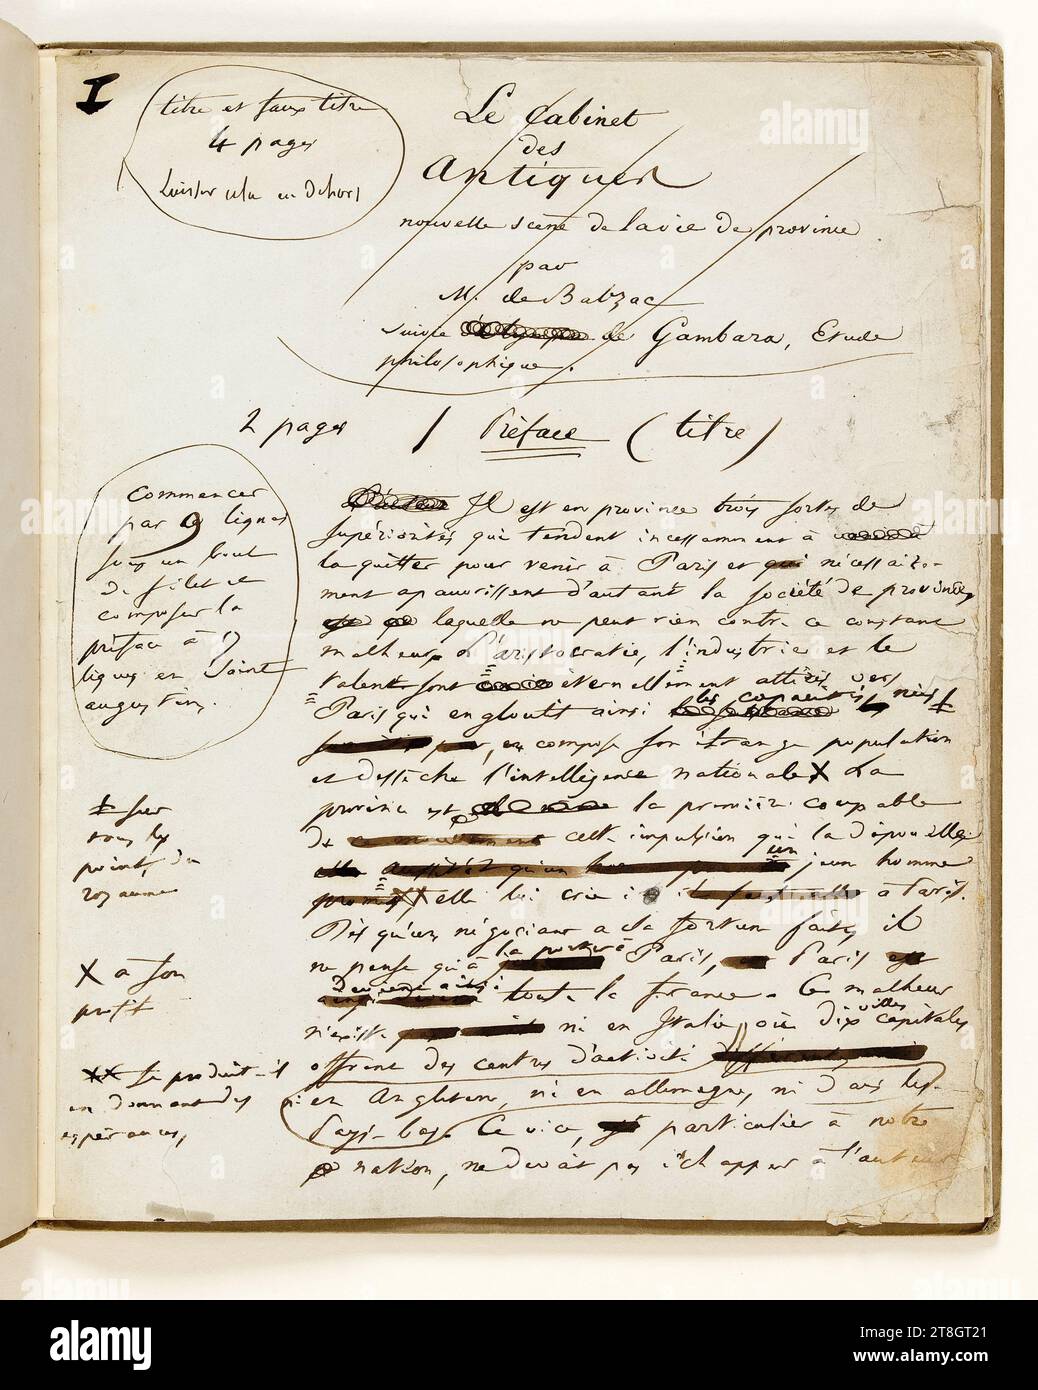 I
titre et faux titre
4 pages
laisser cela en dehors
Le Cabinet
des
Antiques
nouvelle scène de la vie de province
par
M. de Balzac
suivie de Gambara, Etude
philosophique.
2 pages / Préface (titre)
commencer
par 9 lignes
sous un bout
de filet et
composer la
préface à
lignes en Saint
augustin.
Il est en province trois sortes de
supériorités qui tendent incessamment à
la quitter pour venir à Paris et nécessaire-
ment apauvrissent d'autant la société de province,
laquelle ne peut rien contre ce constant
malheur. L'aristocratie, l'industrie et le
talent sont éternellement attirés vers
Paris qui engloutit ainsi les capacités nées ‡
, en compose son étrange population
et dessèche l'intelligence nationale X La
province est la première coupable
de cette impulsion qui la dépouille.
un jeune homme
XX elle lui crie : à Paris.
Dès qu'un négociant a sa fortune faite, il
ne pense qu'à la porter à Paris, Paris
devient ainsi toute la France. Ce malheur
n'existe ni en Italie, où dix villes capitales
offrent des centres d'activité
ni en Angleterre, ni en allemagne, ni dans les
Pays-bas. Ce vice, particulier à notre
nation, ne devait pas échapper à l'auteur
‡ sur
tous les
points du
royaume
X à son
profit
XX se produit-il
en donnant des
espérances,
alamy
Image ID: 2T8GT21
www.alamy.com